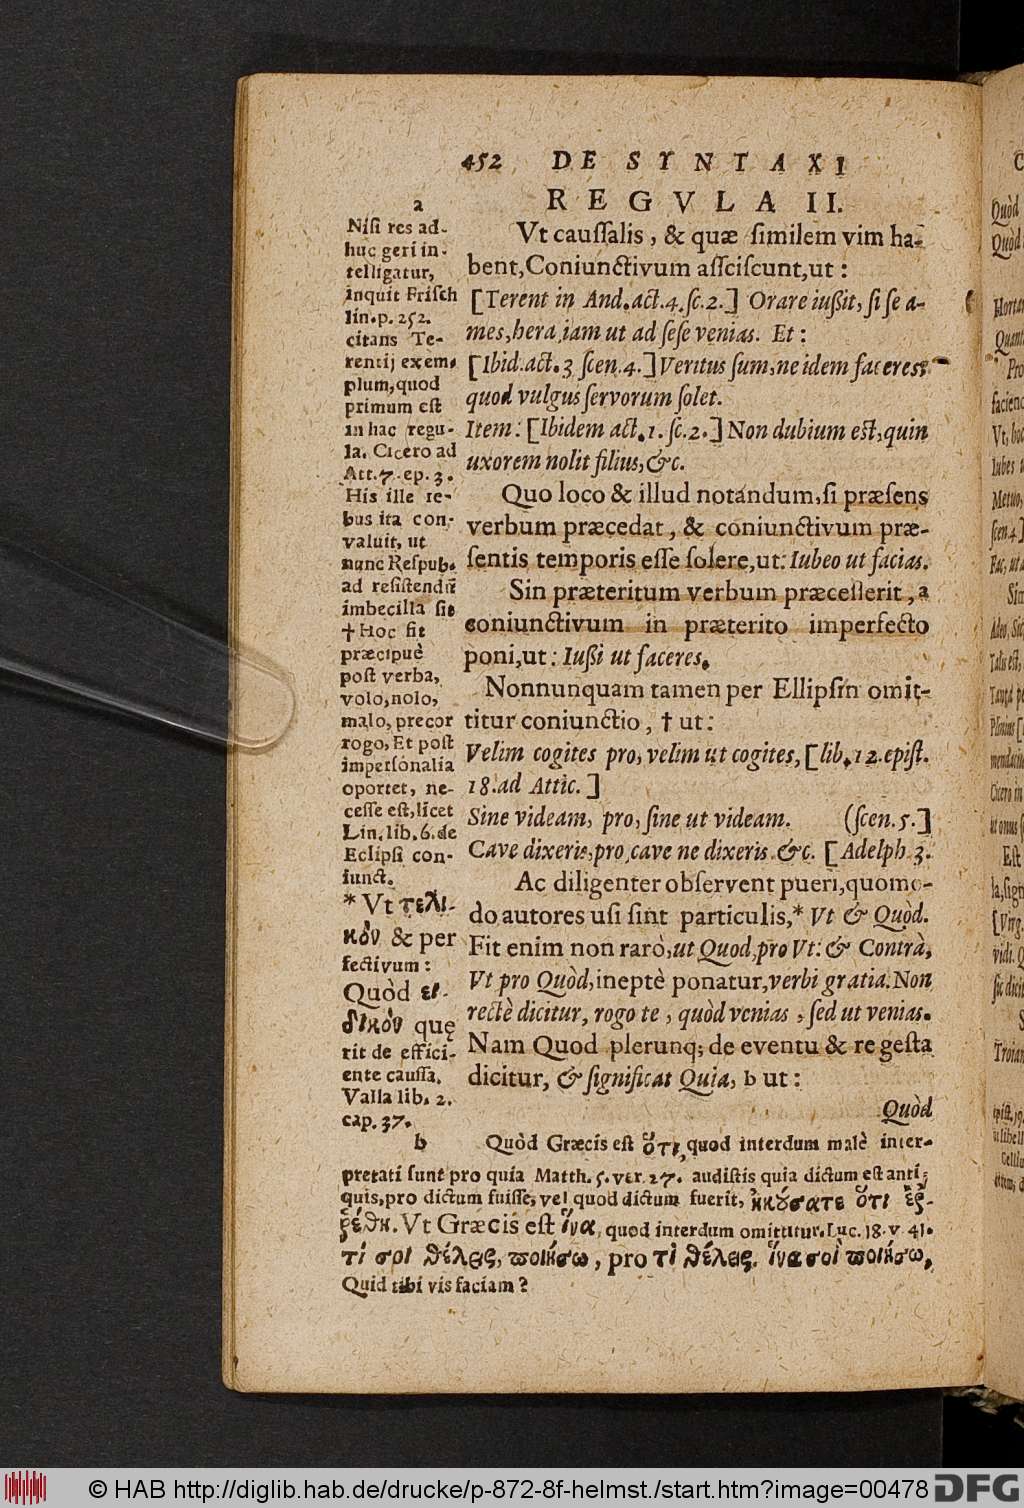 452 DE SYNTAXI
REGVLA II.
Vt caussalis, & quæ similem vim ha-
bent, Coniunctivum assciscunt, ut:
[Terent in And. act. 4. sc. 2.] Orare iußit, si se a-
mes, hera iam ut ad sese venias. Et:
[Ibid. act. 3 scen. 4.] Veritus sum, ne idem faceres,
quod vulgus servorum solet.
Item: [Ibidem act. 1. sc. 2.] Non dubium est, quin
uxorem nolit filius, &c.
Quo loco & illud notandum, si præsens
verbum præcedat, & coniunctivum præ-
sentis temporis esse solere, ut: Iubeo ut facias.
Sin præteritum verbum præcesserit, a
coniunctivum in præterito imperfecto
poni, ut: Iußi ut faceres.
Nonnunquam tamen per Ellipsin omit-
titur coniunctio, † ut:
Velim cogites pro, velim ut cogites, [lib. 12. epist.
18. ad Attic.]
Sine videam, pro, sine ut videam. (scen. 5.]
Cave dixeris, pro cave ne dixeris &c. [Adelph 3.
Ac diligenter observent pueri, quomo-
do autores usi sint particulis, * Vt & Quòd.
Fit enim non rarò, ut Quod, pro Vt: & Contrà,
Vt pro Quòd, ineptè ponatur, verbi gratia. Non
rectè dicitur, rogo te, quòd venias, sed ut venias.
Nam Quod plerunq; de eventu & re gesta
dicitur, & significat Quia, b ut:
Quòd
a
Nisi res ad-
huc geri in-
telligatur,
inquit Frisch
lin. p. 252.
citans Te-
rentij exem-
plum, quod
primum est
in hac regu-
la. Cicero ad
Att. 7. ep. 3.
His ille re-
bus ita con-
valuit, ut
nunc Respub.
ad resistendū
imbecilla sit
† Hoc fit
præcipuè
post verba,
volo, nolo,
malo, precor
rogo, Et post
impersonalia
oportet, ne-
cesse est, licet
Lin. lib. 6. de
Eclipsi con-
iunct.
* Vt τελι-
κὸν & per
fectivum:
Quòd εἰ-
δικὸν quę
rit de effici-
ente caussa.
Valla lib. 2.
cap. 37.
b Quòd Græcis est ὅτι, quod interdum malè inter-
pretati sunt pro quia Matth. 5. ver. 27. audistis quia dictum est anti-
quis, pro dictum fuisse, vel quod dictum fuerit, ἠκούσατε ὅτι ἐῤ-
ῥέθη. Vt Græcis est ἵνα, quod interdum omittitur. Luc. 18. v 41.
τί σοι θέλεις, ποιήσω, pro τί θέλεις. ἵνα σοὶ ποιήσω,
Quid tibi vis faciam?
© HAB http://diglib.hab.de/drucke/p-872-8f-helmst./start.htm?image=00478 DFG